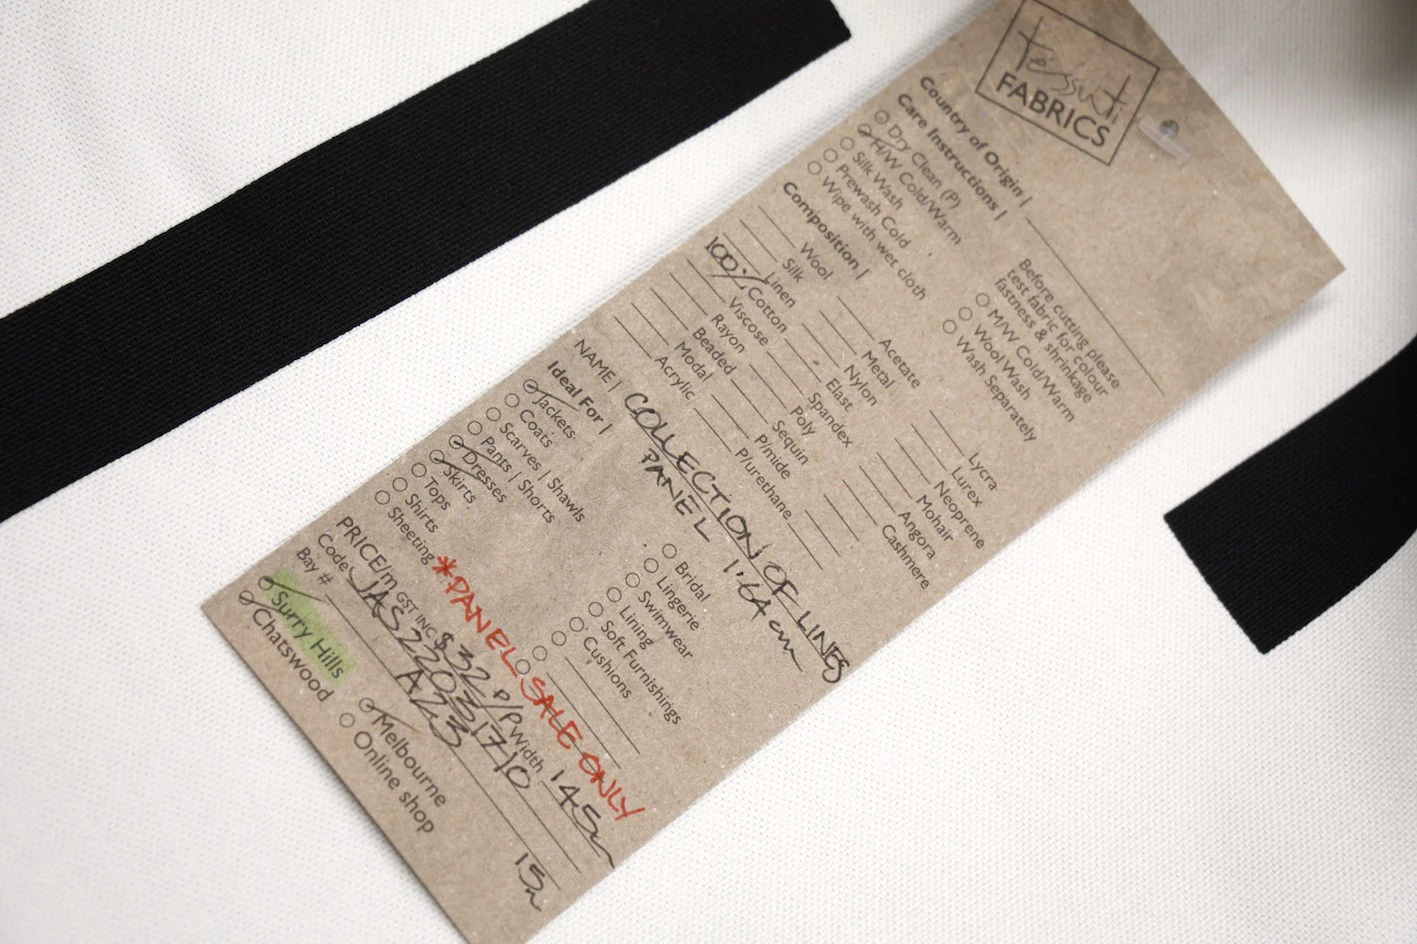 tessuti
FABRICS
Country of Origin |
Care Instructions |
Dry Clean (P)
H/W Cold/Warm
Silk Wash
Prewash Cold
Wipe with wet cloth
Before cutting please
test fabric for colour
fastness & shrinkage
M/W Cold/Warm
Wool Wash
Wash Separately
Composition |
Wool
Silk
Linen
100% Cotton
Viscose
Rayon
Beaded
Modal
Acrylic
Acetate
Metal
Nylon
Elast
Spandex
Poly
Sequin
P/mide
P/urethane
Lycra
Lurex
Neoprene
Mohair
Angora
Cashmere
NAME | COLLECTION OF LINES
PANEL 1.64 cm
Ideal For |
Jackets
Coats
Scarves | Shawls
Pants | Shorts
Dresses
Skirts
Tops
Shirts
Sheeting
Bridal
Lingerie
Swimwear
Lining
Soft Furnishings
Cushions
*PANEL SALE ONLY
PRICE/m GST INC $32 P/P Width 145
Code JAS22031710
Bay # A23
Surry Hills
Chatswood
Melbourne
Online shop